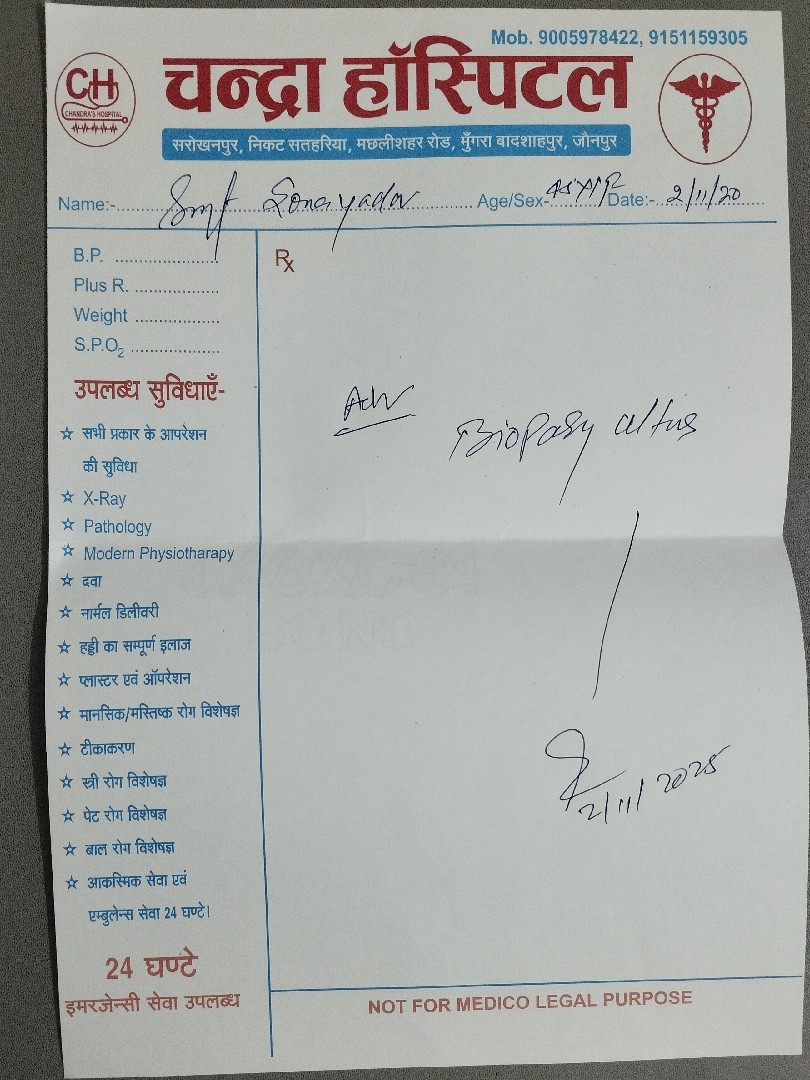 Mob. 9005978422, 9151159305
CH
CHANDRA'S HOSPITAL
चन्द्रा हॉस्पिटल
सरोखनपुर, निकट सतहरिया, मछलीशहर रोड, मुँगरा बादशाहपुर, जौनपुर
Name:- Smt Sona yadav Age/Sex- Date:- 2/11/20
B.P.
Plus R.
Weight
S.P.O2
Rx
उपलब्ध सुविधाएँ-
सभी प्रकार के आपरेशन
की सुविधा
X-Ray
Pathology
Modern Physiotharapy
दवा
नार्मल डिलीवरी
हड्डी का सम्पूर्ण इलाज
प्लास्टर एवं ऑपरेशन
मानसिक/मस्तिष्क रोग विशेषज्ञ
टीकाकरण
स्त्री रोग विशेषज्ञ
पेट रोग विशेषज्ञ
बाल रोग विशेषज्ञ
आकस्मिक सेवा एवं
एम्बुलेन्स सेवा 24 घण्टे।
24 घण्टे
इमरजेन्सी सेवा उपलब्ध
Adv
Biopasy
2/11/2025
NOT FOR MEDICO LEGAL PURPOSE